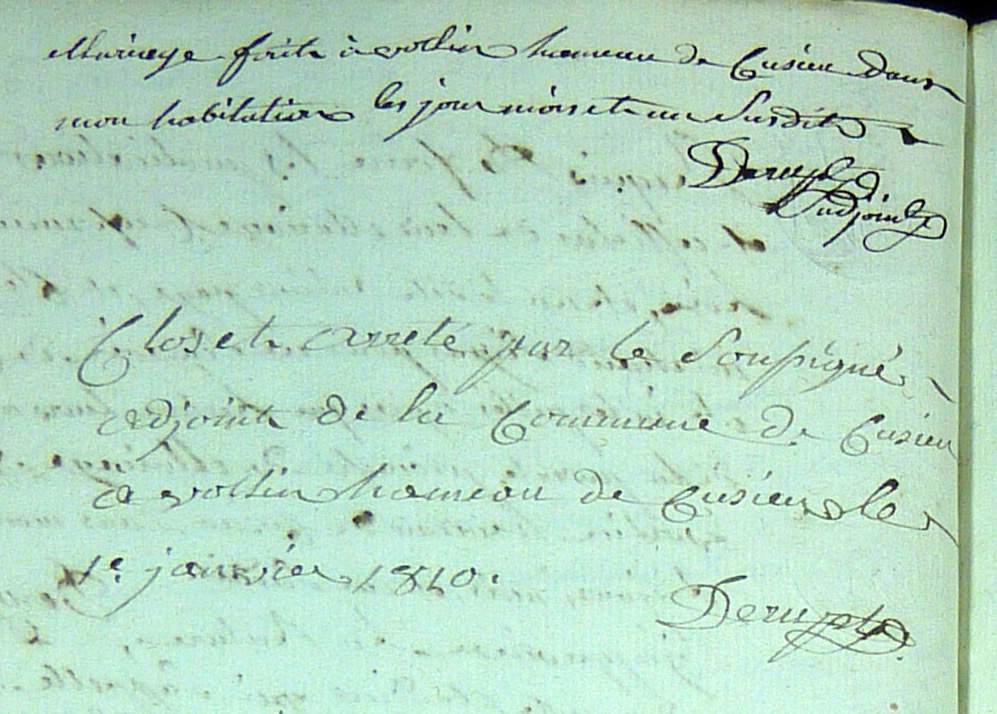 Mariage fait à vollin hameau de Cusieu dans
mon habitation les jour mois et an Susdits
Derupt
adjoint
Clos et arreté par le Soussigné
adjoint de la Commune de Cusieu
a vollin hameau de Cusieu le
1er janvier 1810.
Derupt